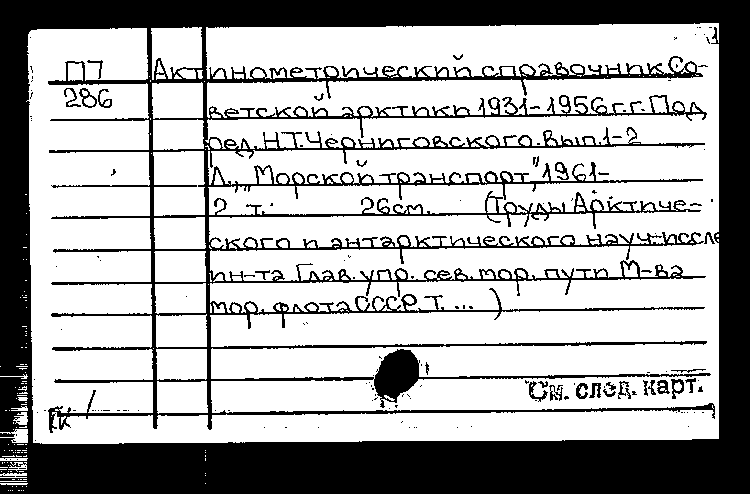 1
П7 Актинометрический справочник Со-
286 ветской арктики 1931-1956 г.г. Под
ред. Н.Т. Черниговского. Вып. 1-2
Л., „Морской транспорт", 1961-
2 т. 26 см. (Труды Арктиче-
ского и антарктического науч-иссле
ин-та Глав. упр. сев. мор. пути М-ва
мор. флота СССР. Т. ... )
См. след. карт.
ГК /